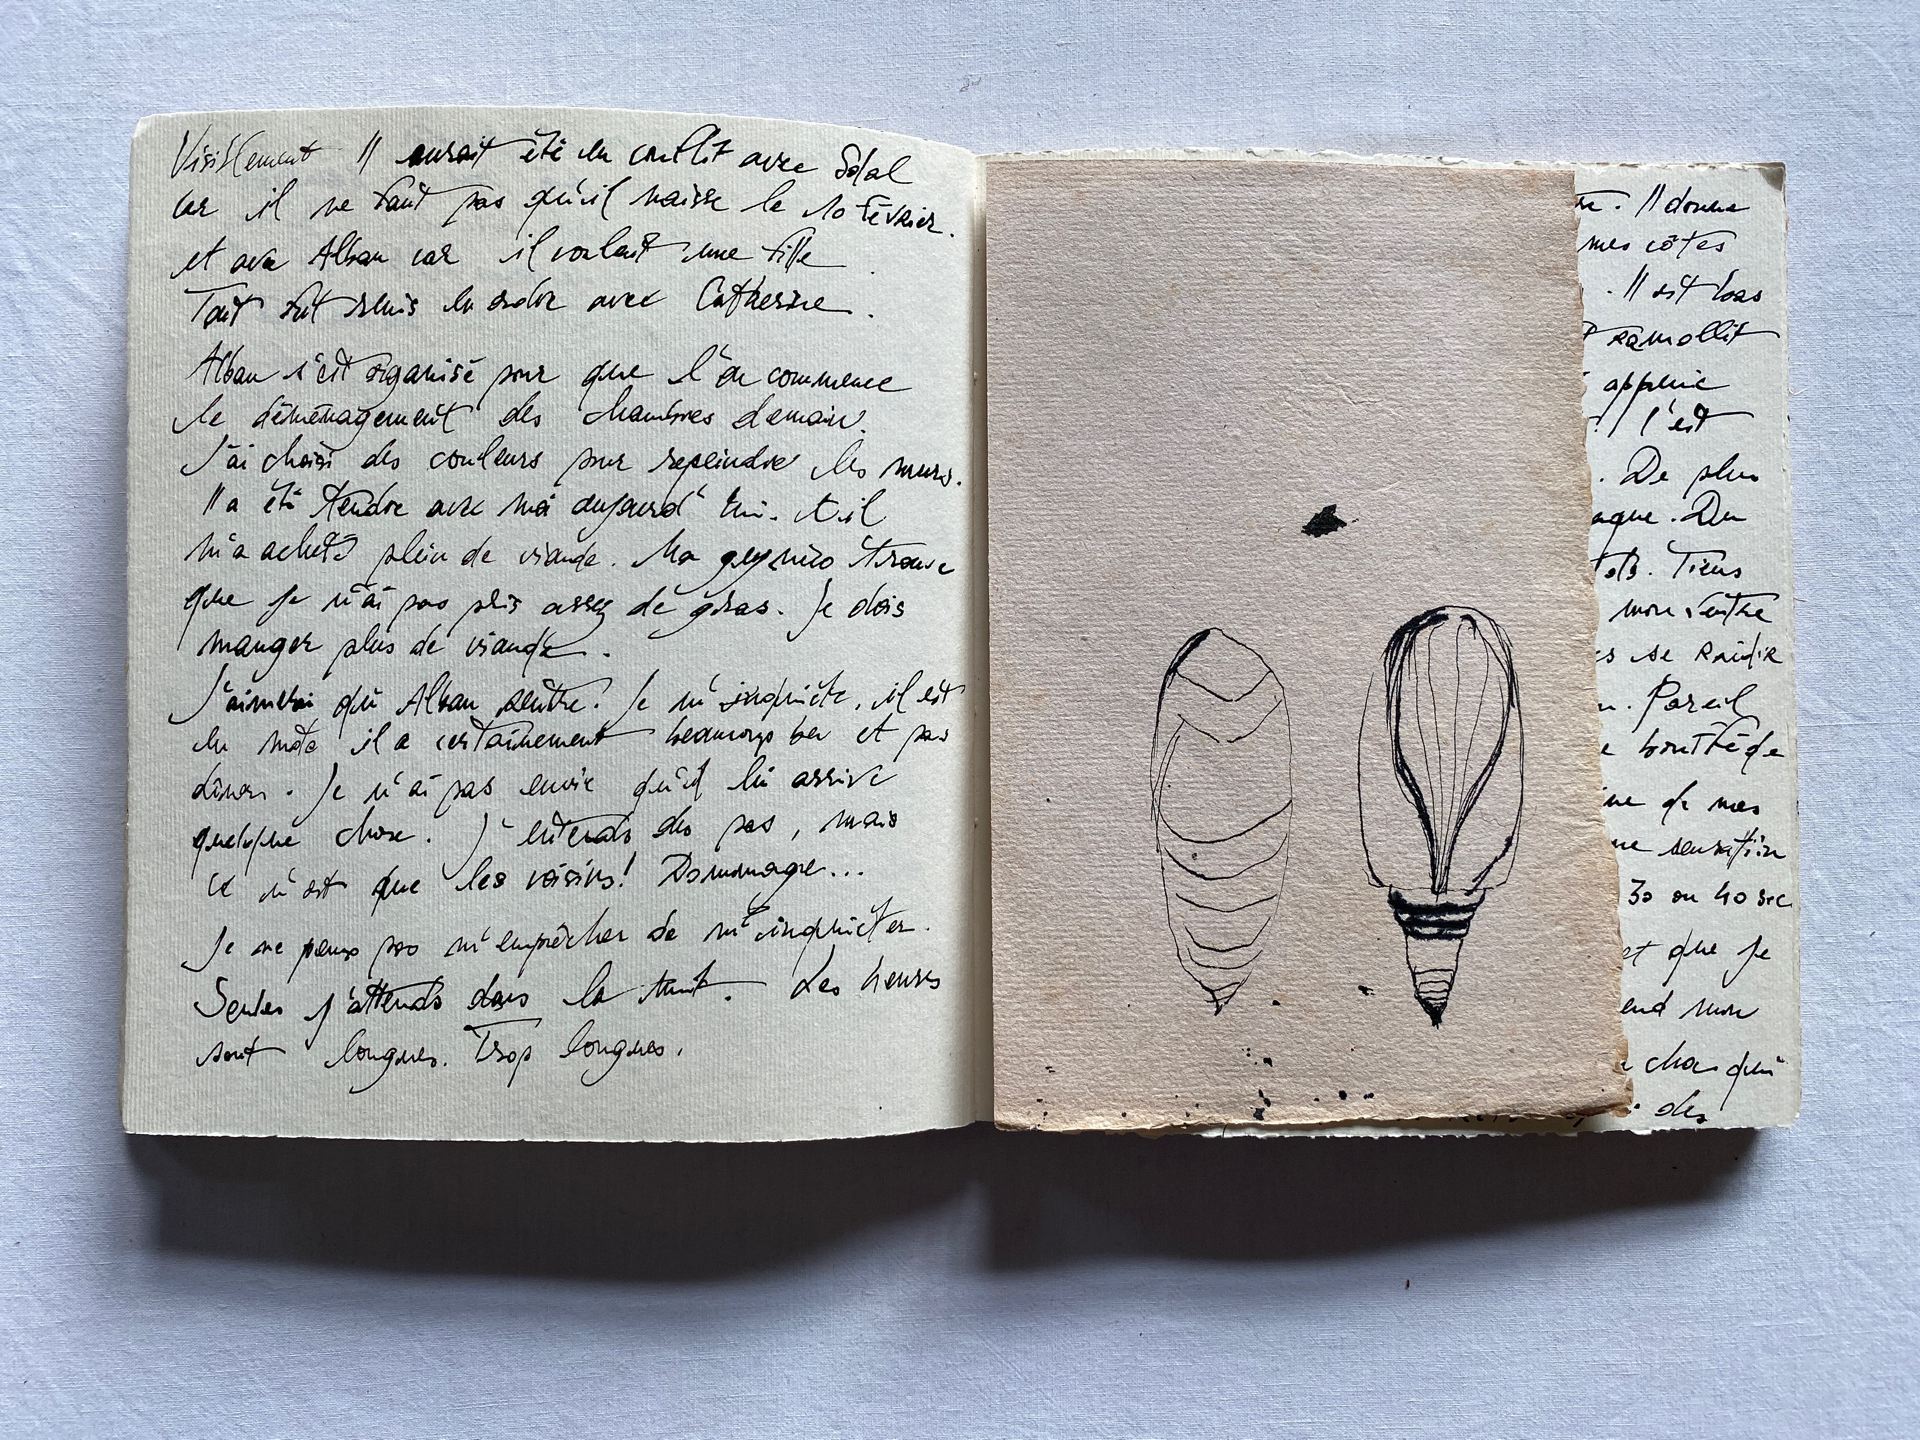 Visiblement Il aurait été en conflit avec Solal
car il ne faut pas qu'il naisse le 10 février.
et avec Alban car il voulait une fille.
Tout fut remis en ordre avec Catherine.
Alban s'est organisé pour que l'on commence
le déménagement des chambres demain.
J'ai choisi des couleurs pour repeindre les murs.
Il a été tendre avec moi aujourd'hui. Et il
m'a acheté plein de viande. Ma gynéco trouve
que je n'ai pas pris assez de gras. Je dois
manger plus de viande.
J'aimerai qu'Alban rentre. Je m'inquiète, il est
en moto il a certainement beaucoup bu et pas
dîner. Je n'ai pas envie qu'il lui arrive
quelque chose. J'entends des pas, mais
ce n'est que les voisins! Dommage...
Je ne peux pas m'empêcher de m'inquiéter.
Seules j'attends dans la nuit. Les heures
sont longues. Trop longues.
. Il donne
mes côtes
. Il est bas
ramollit
appuie
! l'est
. De plus
. Du
. Tiens
mon ventre
se raidir
. Pareil
de mes
sensation
30 ou 40 sec
et que je
mon
qui
des